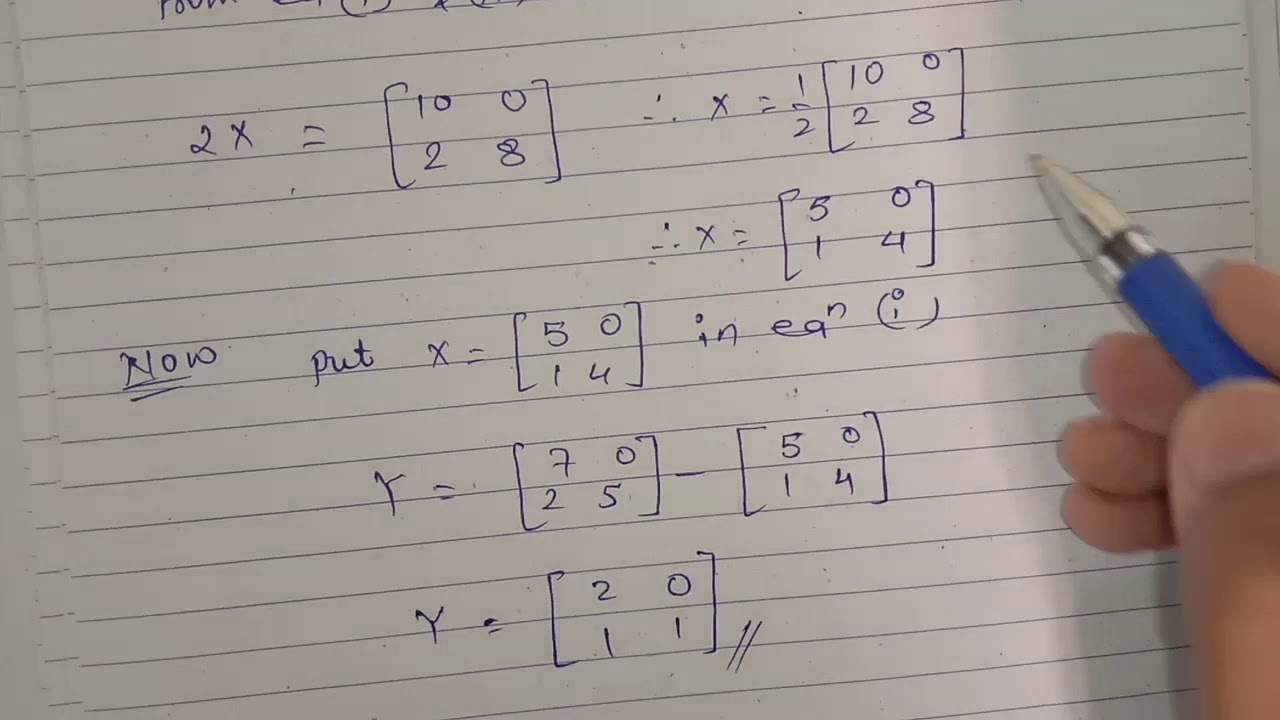 2X = [10 0 2 8] ∴ X = 1/2 [10 0 2 8]
∴ X = [5 0 1 4]
Now put X = [5 0 1 4] in eqn (i)
Y = [7 0 2 5] - [5 0 1 4]
Y = [2 0 1 1] //